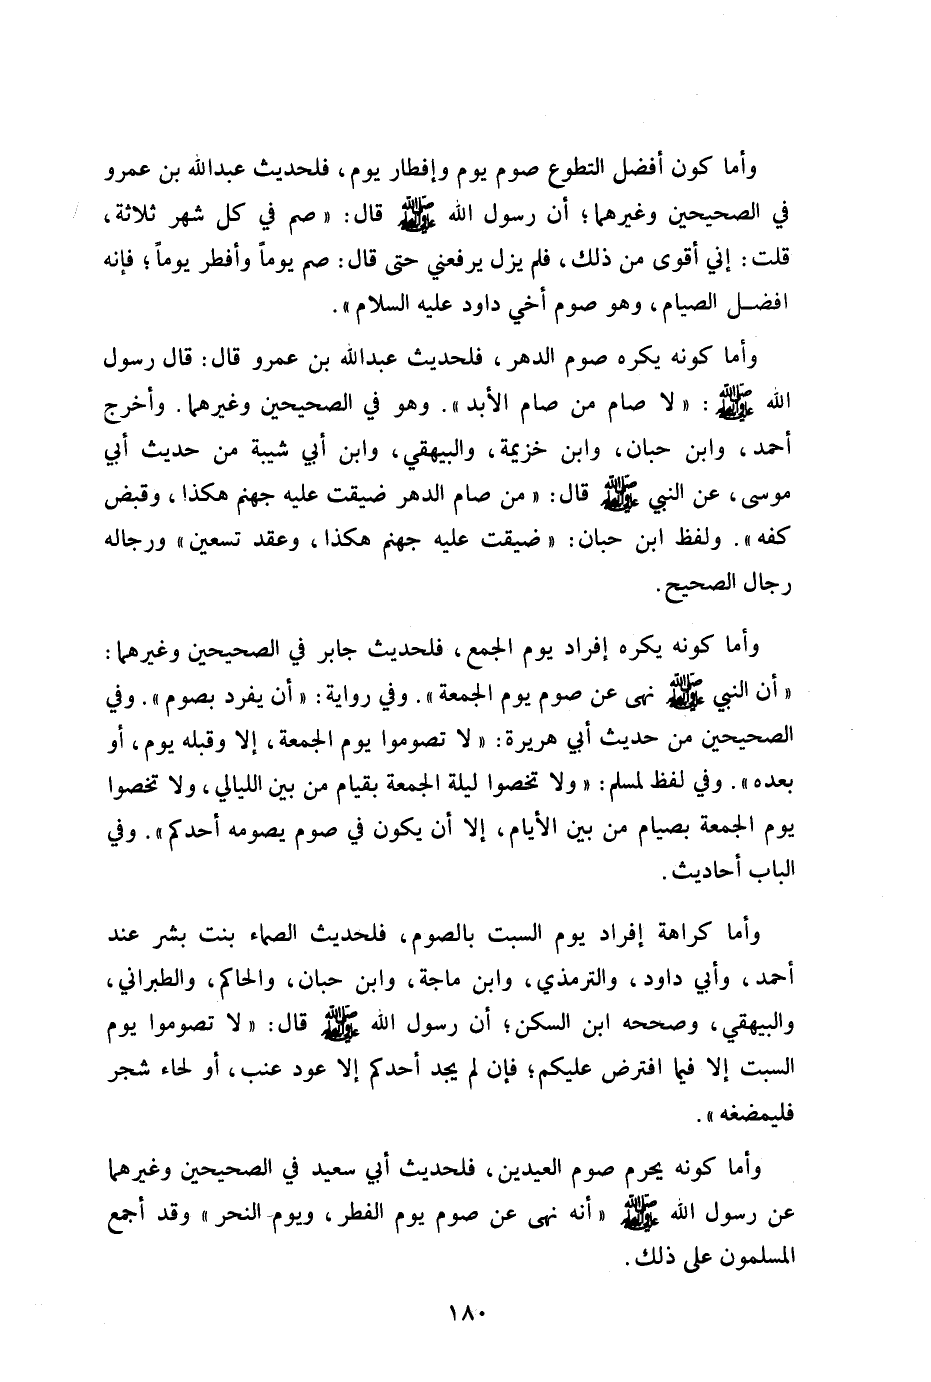 وأما كون أفضل التطوع صوم يوم وإفطار يوم، فلحديث عبدالله بن عمرو
في الصحيحين وغيرهما؛ أن رسول الله ﷺ قال: «صم في كل شهر ثلاثة،
قلت: إني أقوى من ذلك، فلم يزل يرفعني حتى قال: صم يوماً وأفطر يوماً؛ فإنه
افضل الصيام، وهو صوم أخي داود عليه السلام».
وأما كونه يكره صوم الدهر، فلحديث عبدالله بن عمرو قال: قال رسول
الله ﷺ: «لا صام من صام الأبد». وهو في الصحيحين وغيرهما. وأخرج
أحمد، وابن حبان، وابن خزيمة، والبيهقي، وابن أبي شيبة من حديث أبي
موسى، عن النبي ﷺ قال: «من صام الدهر ضيقت عليه جهنم هكذا، وقبض
كفه». ولفظ ابن حبان: «ضيقت عليه جهنم هكذا، وعقد تسعين» ورجاله
رجال الصحيح.
وأما كونه يكره إفراد يوم الجمع، فلحديث جابر في الصحيحين وغيرهما:
«أن النبي ﷺ نهى عن صوم يوم الجمعة». وفي رواية: «أن يفرد بصوم». وفي
الصحيحين من حديث أبي هريرة: «لا تصوموا يوم الجمعة، إلا وقبله يوم، أو
بعده». وفي لفظ لمسلم: «ولا تخصوا ليلة الجمعة بقيام من بين الليالي، ولا تخصوا
يوم الجمعة بصيام من بين الأيام، إلا أن يكون في صوم يصومه أحدكم». وفي
الباب أحاديث.
وأما كراهة إفراد يوم السبت بالصوم، فلحديث الصماء بنت بشر عند
أحمد، وأبي داود، والترمذي، وابن ماجة، وابن حبان، والحاكم، والطبراني،
والبيهقي، وصححه ابن السكن؛ أن رسول الله ﷺ قال: «لا تصوموا يوم
السبت إلا فيما افترض عليكم؛ فإن لم يجد أحدكم إلا عود عنب، أو لحاء شجر
فليمضغه».
وأما كونه يحرم صوم العيدين، فلحديث أبي سعيد في الصحيحين وغيرهما
عن رسول الله ﷺ «أنه نهى عن صوم يوم الفطر، ويوم النحر» وقد أجمع
المسلمون على ذلك.
١٨٠